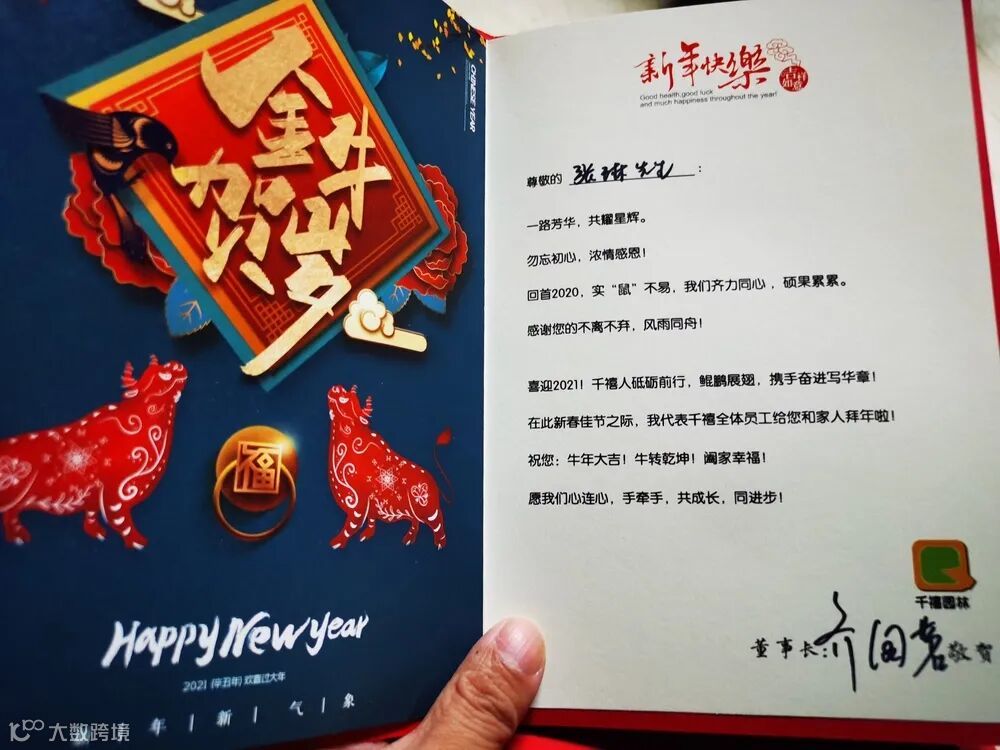 金牛
贺岁
CHINESE YEAR
福
Happy New year
2021 (辛丑年) 欢喜过大年
年 | 新 | 气 | 象
大数跨境
新年快樂
吉祥如意
Good health,good luck
and much happiness throughout the year!
尊敬的 张琳先生 :
一路芳华，共耀星辉。
勿忘初心，浓情感恩！
回首2020，实“鼠”不易，我们齐力同心，硕果累累。
感谢您的不离不弃，风雨同舟！
喜迎2021！千禧人砥砺前行，鲲鹏展翅，携手奋进写华章！
在此新春佳节之际，我代表千禧全体员工给您和家人拜年啦！
祝您：牛年大吉！牛转乾坤！阖家幸福！
愿我们心连心，手牵手，共成长，同进步！
千禧园林
董事长: 敬贺